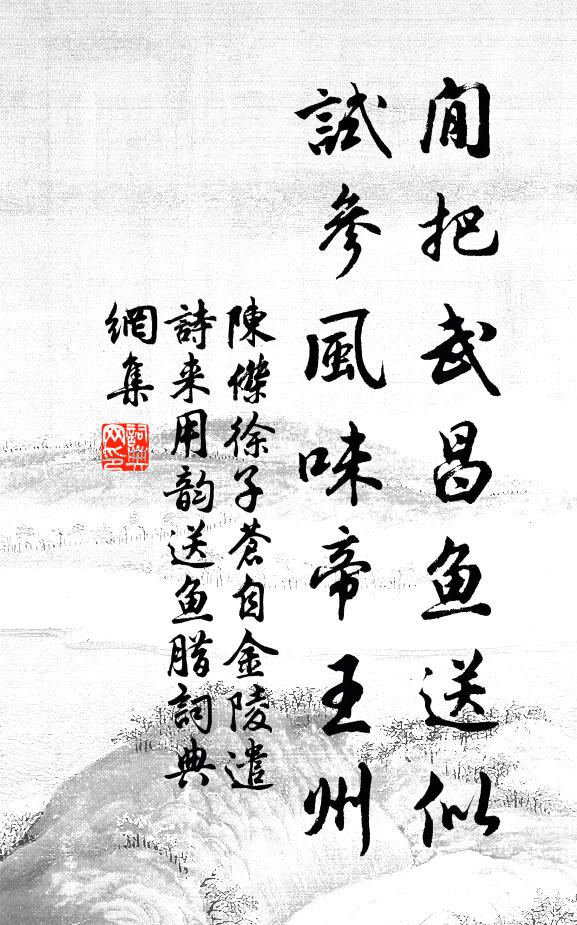 閒把武昌鱼送似
試參風味帝王州
陳傑徐子蒼自金陵遣
詩来用韵送鱼腊詞典
網集